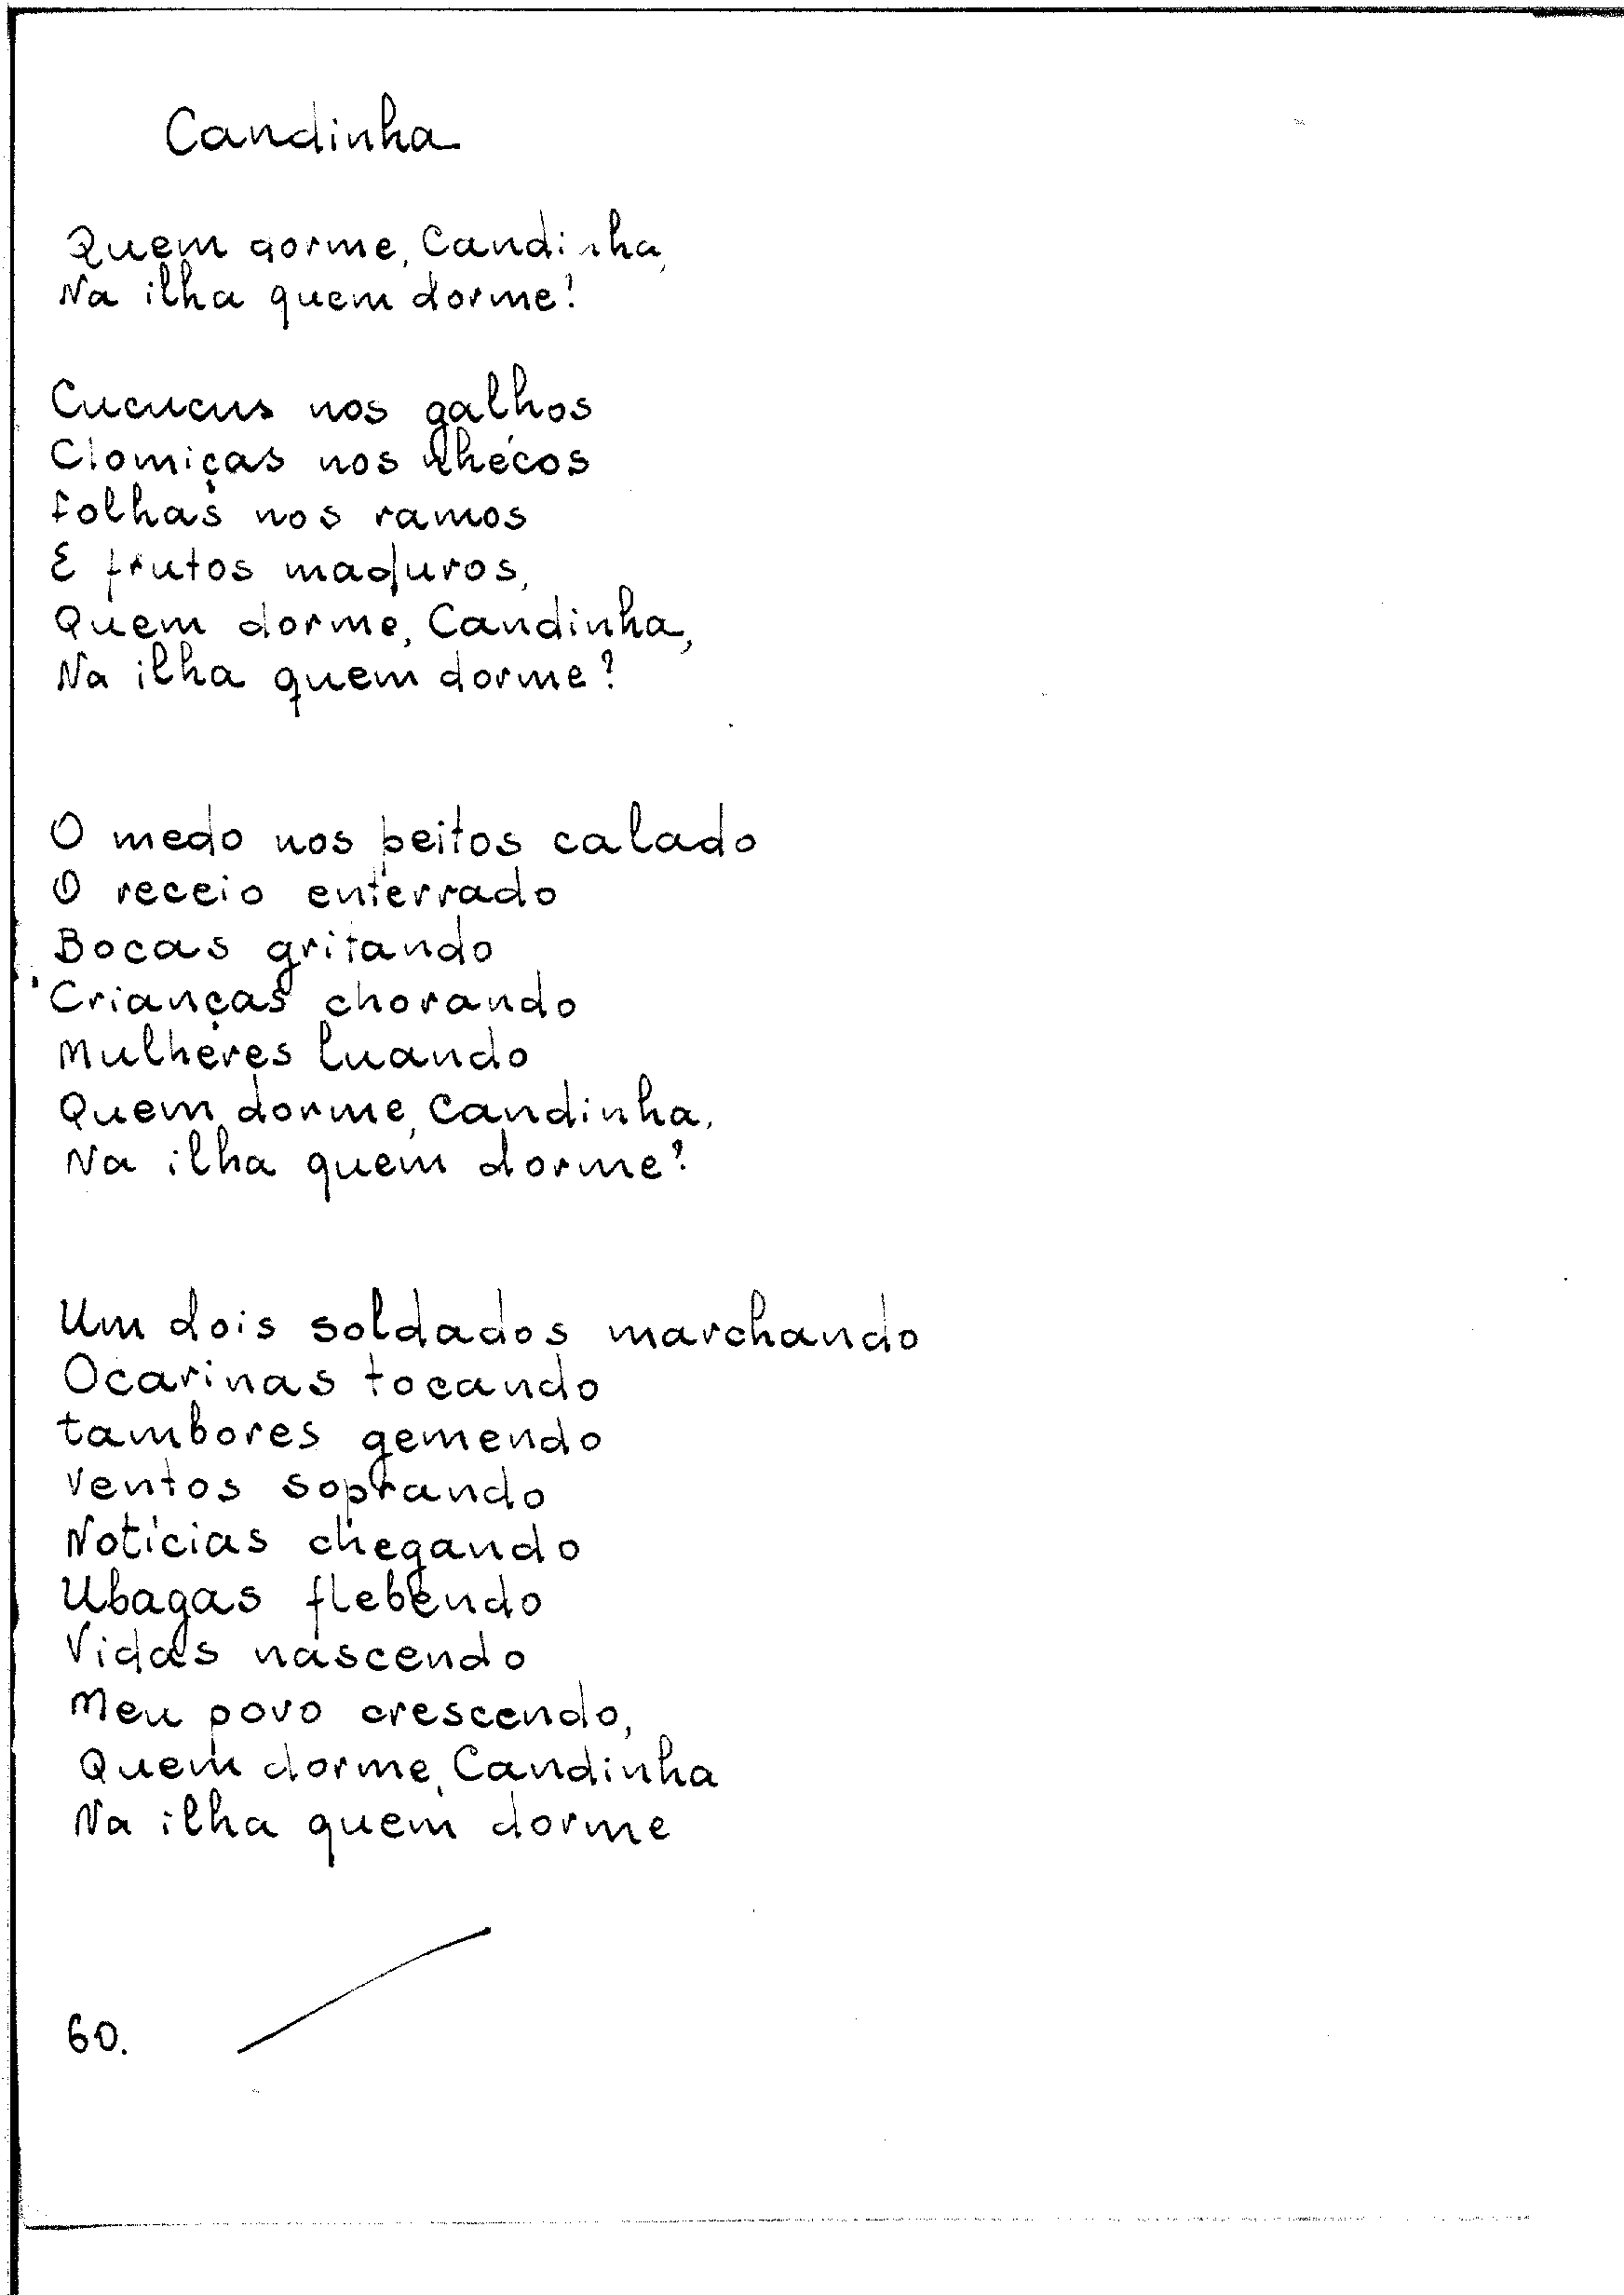 Candinha
Quem dorme, Candinha,
Na ilha quem dorme?
Cucucus nos galhos
Clomiças nos lhécos
folhas nos ramos
E frutos maduros,
Quem dorme, Candinha,
Na ilha quem dorme?
O medo nos peitos calado
O receio enterrado
Bocas gritando
Crianças chorando
Mulheres luando
Quem dorme, Candinha,
Na ilha quem dorme?
Um dois soldados marchando
Ocarinas tocando
tambores gemendo
Ventos soprando
Notícias chegando
Ubagas flebendo
Vidas nascendo
Meu povo crescendo,
Quem dorme, Candinha
Na ilha quem dorme
60.